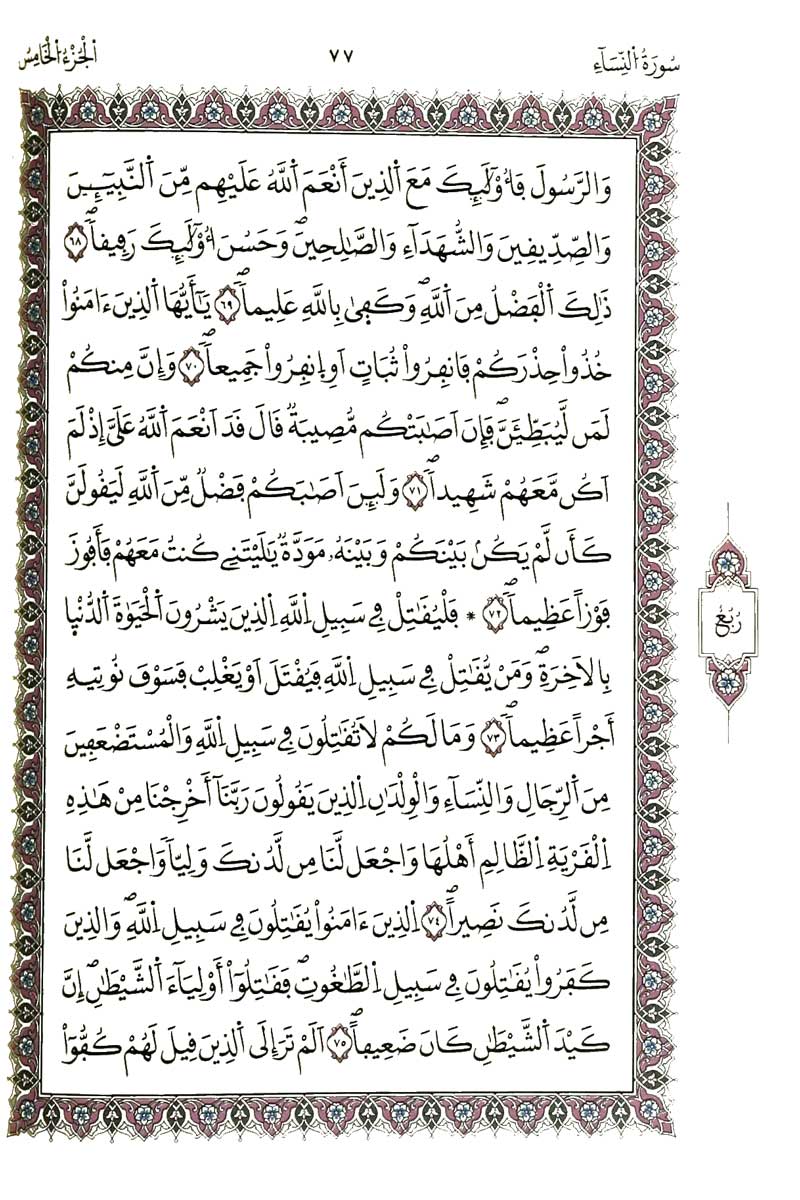 سُورَةُ اُلنِّسَآءِ
٧٧
اَلْجُزْءُ اُلْخَامِسُ
وَالرَّسُولَ فَأُوْلَٰٓئِكَ مَعَ اَلذِينَ أَنْعَمَ اَللَّهُ عَلَيْهِم مِّنَ اَلنَّبِيٓـِٕينَ
وَالصِّدِّيقِينَ وَالشُّهَدَآءِ وَالصَّٰلِحِينَۖ وَحَسُنَ أُوْلَٰٓئِكَ رَفِيقاٗۖ ٦٨
ذَٰلِكَ اَلْفَضْلُ مِنَ اَللَّهِۖ وَكَفَىٰ بِاللَّهِ عَلِيماٗۖ ٦٩ يَٰٓأَيُّهَا اَلذِينَ ءَامَنُواْ
خُذُواْ حِذْرَكُمْ فَانفِرُواْ ثُبَاتٍ أَوِ اِنفِرُواْ جَمِيعاٗۖ ٧٠ وَإِنَّ مِنكُمْ
لَمَن لَّيُبَطِّئَنَّۖ فَإِنَ اَصَٰبَتْكُم مُّصِيبَةٞ قَالَ قَدَ اَنْعَمَ اَللَّهُ عَلَيَّ إِذْ لَمَ
اَكُن مَّعَهُمْ شَهِيداٗۖ ٧١ وَلَئِنَ اَصَٰبَكُمْ فَضْلٞ مِّنَ اَللَّهِ لَيَقُولَنَّ
كَأَن لَّمْ يَكُنۢ بَيْنَكُمْ وَبَيْنَهُۥ مَوَدَّةٞ يَٰلَيْتَنِے كُنتُ مَعَهُمْ فَأَفُوزَ
فَوْزاً عَظِيماٗۖ ٧٢ * فَلْيُقَٰتِلْ فِے سَبِيلِ اِللَّهِ اِلذِينَ يَشْرُونَ اَلْحَيَوٰةَ اَلدُّنْيَا
بِالَاخِرَةِۖ وَمَنْ يُّقَٰتِلْ فِے سَبِيلِ اِللَّهِ فَيُقْتَلَ اَوْ يَغْلِبْ فَسَوْفَ نُوتِيهِ
أَجْراً عَظِيماٗۖ ٧٣ وَمَا لَكُمْ لَا تُقَٰتِلُونَ فِے سَبِيلِ اِللَّهِ وَالْمُسْتَضْعَفِينَ
مِنَ اَلرِّجَالِ وَالنِّسَآءِ وَالْوِلْدَٰنِ اِلذِينَ يَقُولُونَ رَبَّنَآ أَخْرِجْنَا مِنْ هَٰذِهِ
اِلْقَرْيَةِ اِلظَّالِمِ أَهْلُهَا وَاجْعَل لَّنَا مِن لَّدُنكَ وَلِيّاٗ وَاجْعَل لَّنَا
مِن لَّدُنكَ نَصِيراًۖ ٧٤ اِلذِينَ ءَامَنُواْ يُقَٰتِلُونَ فِے سَبِيلِ اِللَّهِۖ وَالذِينَ
كَفَرُواْ يُقَٰتِلُونَ فِے سَبِيلِ اِلطَّٰغُوتِۖ فَقَٰتِلُوٓاْ أَوْلِيَآءَ اَلشَّيْطَٰنِۖ إِنَّ
كَيْدَ اَلشَّيْطَٰنِ كَانَ ضَعِيفاًۖ ٧٥ اَلَمْ تَرَ إِلَى اَلذِينَ قِيلَ لَهُمْ كُفُّوٓاْ
رُبُعُ